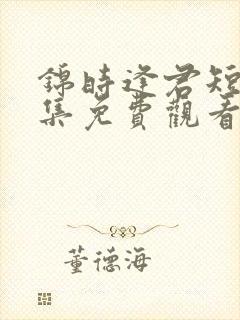 錦時逢君短
集免費觀看
董德海